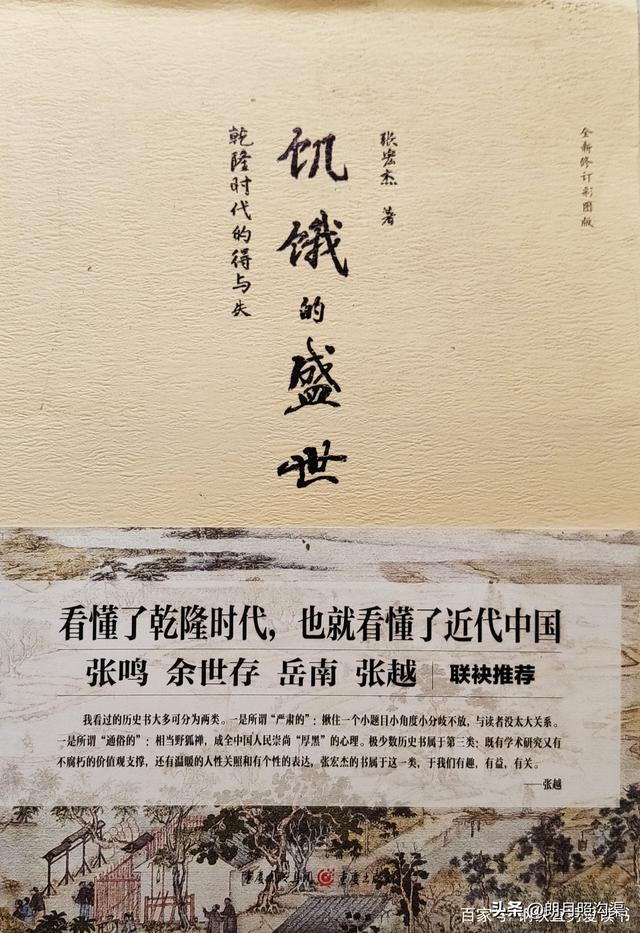 全新修订彩图版
张宏杰 著
饥饿的盛世
乾隆时代的得与失
看懂了乾隆时代，也就看懂了近代中国
张鸣 余世存 岳南 张越 | 联袂推荐
我看过的历史书大多可分为两类。一是所谓“严肃的”：揪住一个小题目小角度小分歧不放，与读者没太大关系。
一是所谓“通俗的”：相当野狐禅，成全中国人民崇尚“厚黑”的心理。极少数历史书属于第三类：既有学术研究又有
不腐朽的价值观支撑，还有温暖的人性关照和有个性的表达，张宏杰的书属于这一类，于我们有趣，有益，有关。
——张越
头条 @朗月照沟渠